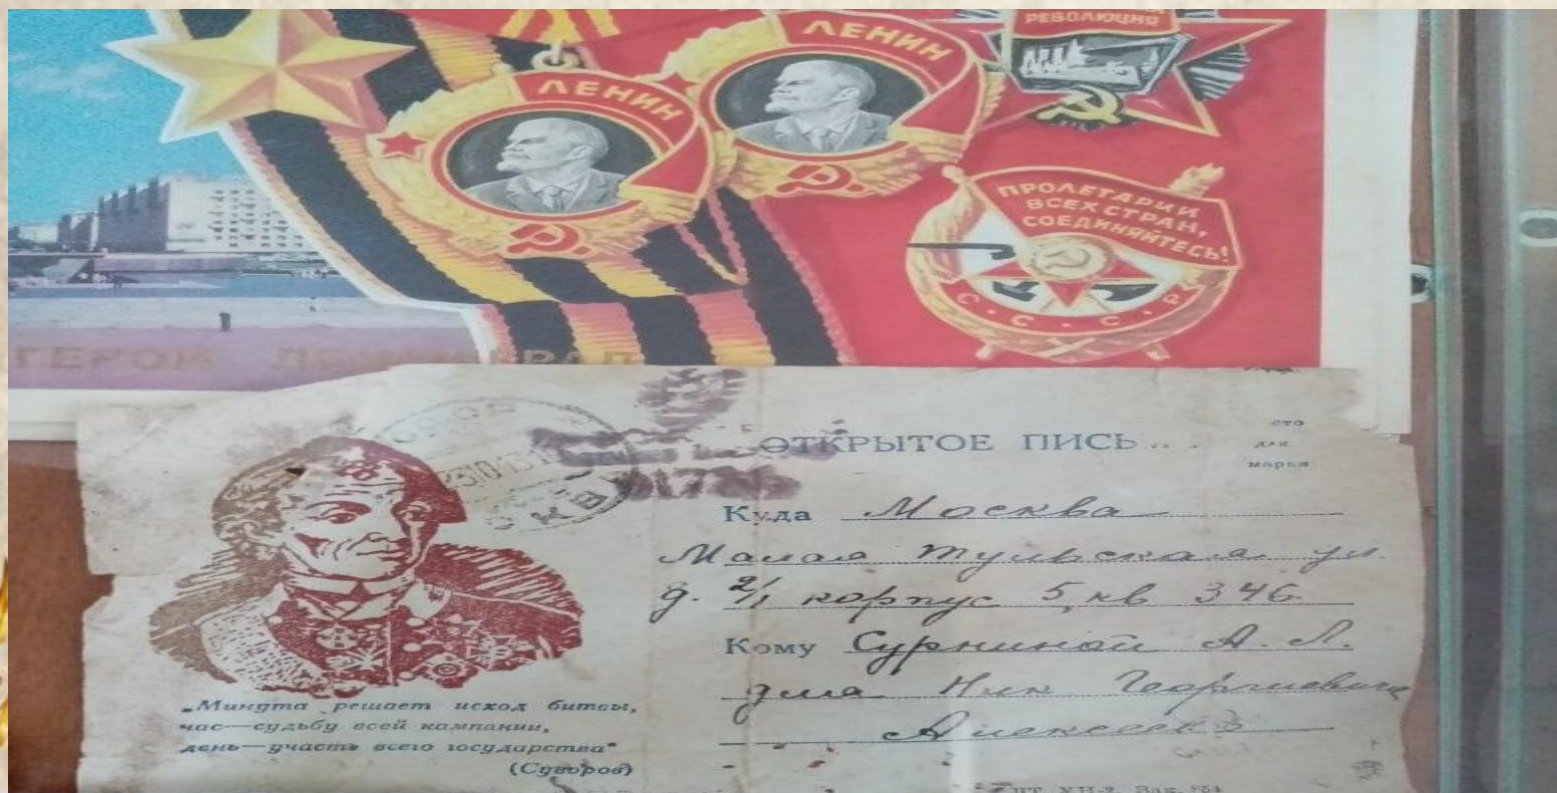 РЕВОЛЮЦИЯ
ЛЕНИН
ЛЕНИН
ПРОЛЕТАРИИ
ВСЕХ СТРАН,
СОЕДИНЯЙТЕСЬ!
С·С·С·Р
ГЕРОЙ
ОТКРЫТОЕ ПИСЬ
сто
для
марки
Куда Москва
Малая Тульская ул.
д. 2/1 корпус 5, кв 346
Кому Сурниной А. Л.
для Ник Георгиевича
Алексеева
„Минута решает исход битвы,
час—судьбу всей кампании,
день—участь всего государства“
(Суворов)